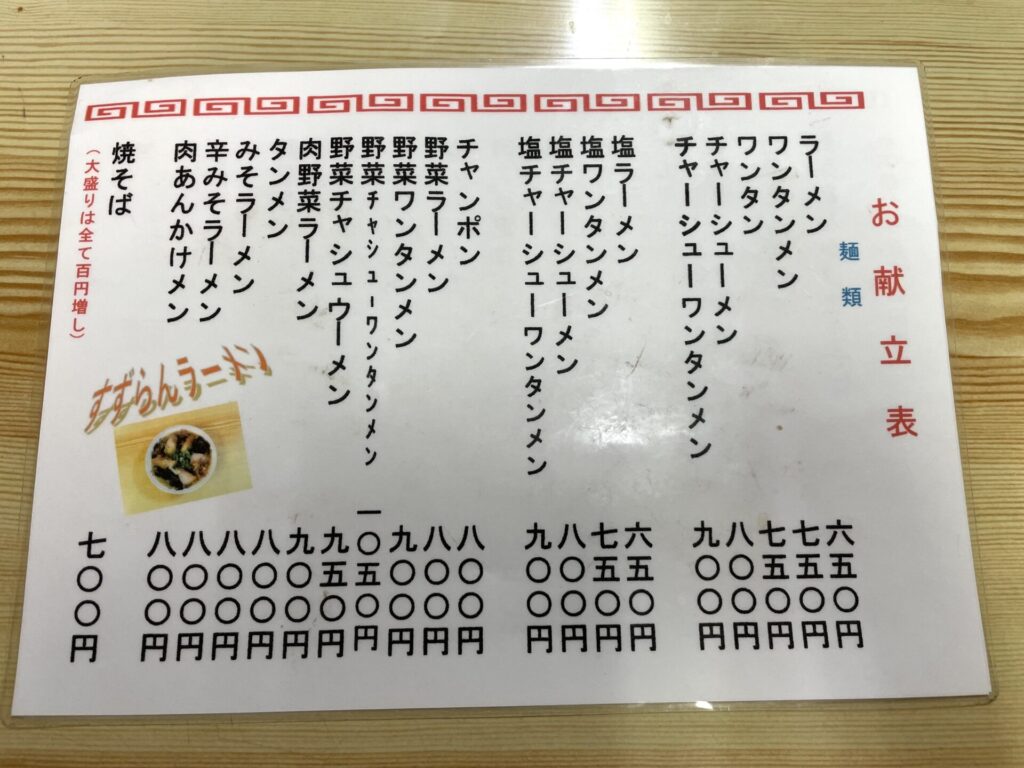 お献立表
麺類
ラーメン 六五〇円
ワンタンメン 七五〇円
ワンタン 七五〇円
チャーシューメン 八〇〇円
チャーシューワンタンメン 九〇〇円
塩ラーメン 六五〇円
塩ワンタンメン 七五〇円
塩チャーシューメン 八〇〇円
塩チャーシューワンタンメン 九〇〇円
チャンポン 八〇〇円
野菜ラーメン 八〇〇円
野菜ワンタンメン 九〇〇円
野菜チャシューワンタンメン 一〇五〇円
野菜チャシュウーメン 九五〇円
肉野菜ラーメン 九〇〇円
タンメン 八〇〇円
みそラーメン 八〇〇円
辛みそラーメン 八〇〇円
肉あんかけメン 八〇〇円
焼そば 七〇〇円
(大盛りは全て百円増し)
すずらんラーメン